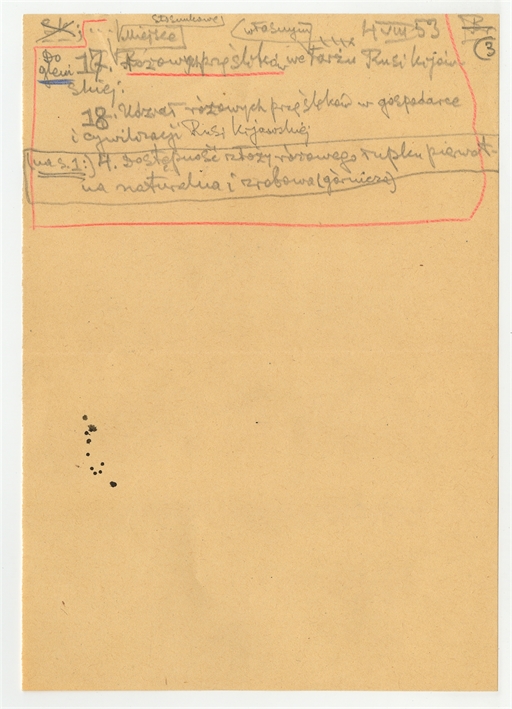 stosunkowe
miejsce własnym 4 VIII 53
Do 17. Różowy przęślik we Rusi Kijow-
skiej. 3
18. Udział różowych przęślików w gospodarce
i cywilizacji Rusi Kijowskiej
(na s. 1:) 4. Dostępność złoży różowego łupku pierwot-
na naturalna i zrobowa (górnicza)